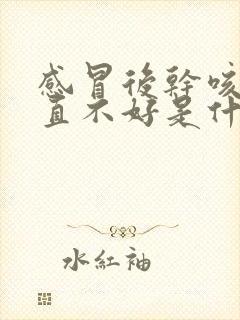 感冒後幹咳
直不好是什
水紅袖